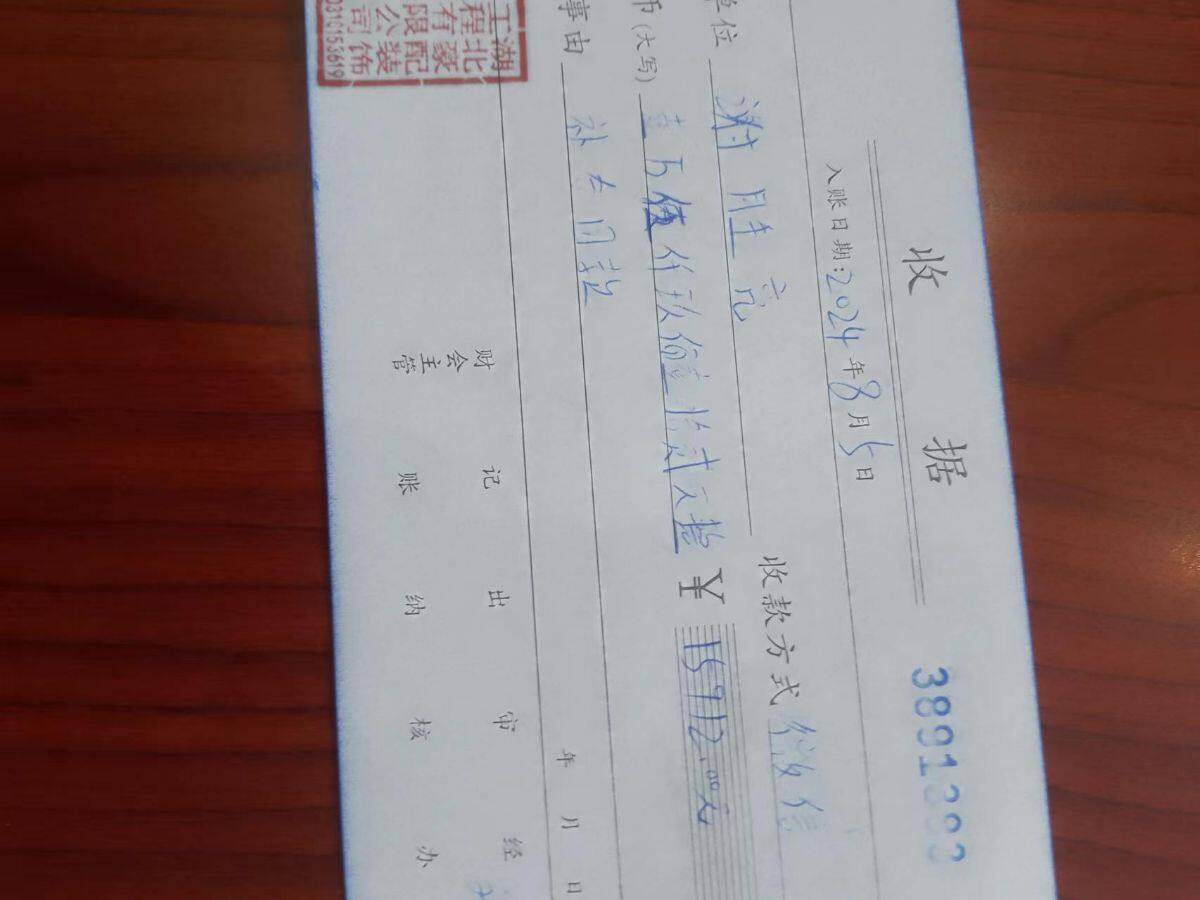 收据
入账日期:2024年8月5日
单位 谢胜亮 收款方式 微信
币(大写) 壹万伍仟玖佰壹拾贰元整 ¥ 15912.00元
事由 补 同款
年 月 日
财会主管 记账 出纳 审核 经办
湖北豪配装饰
工程有限公司